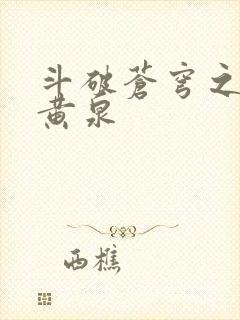 斗破苍穹之
黄泉
西樵